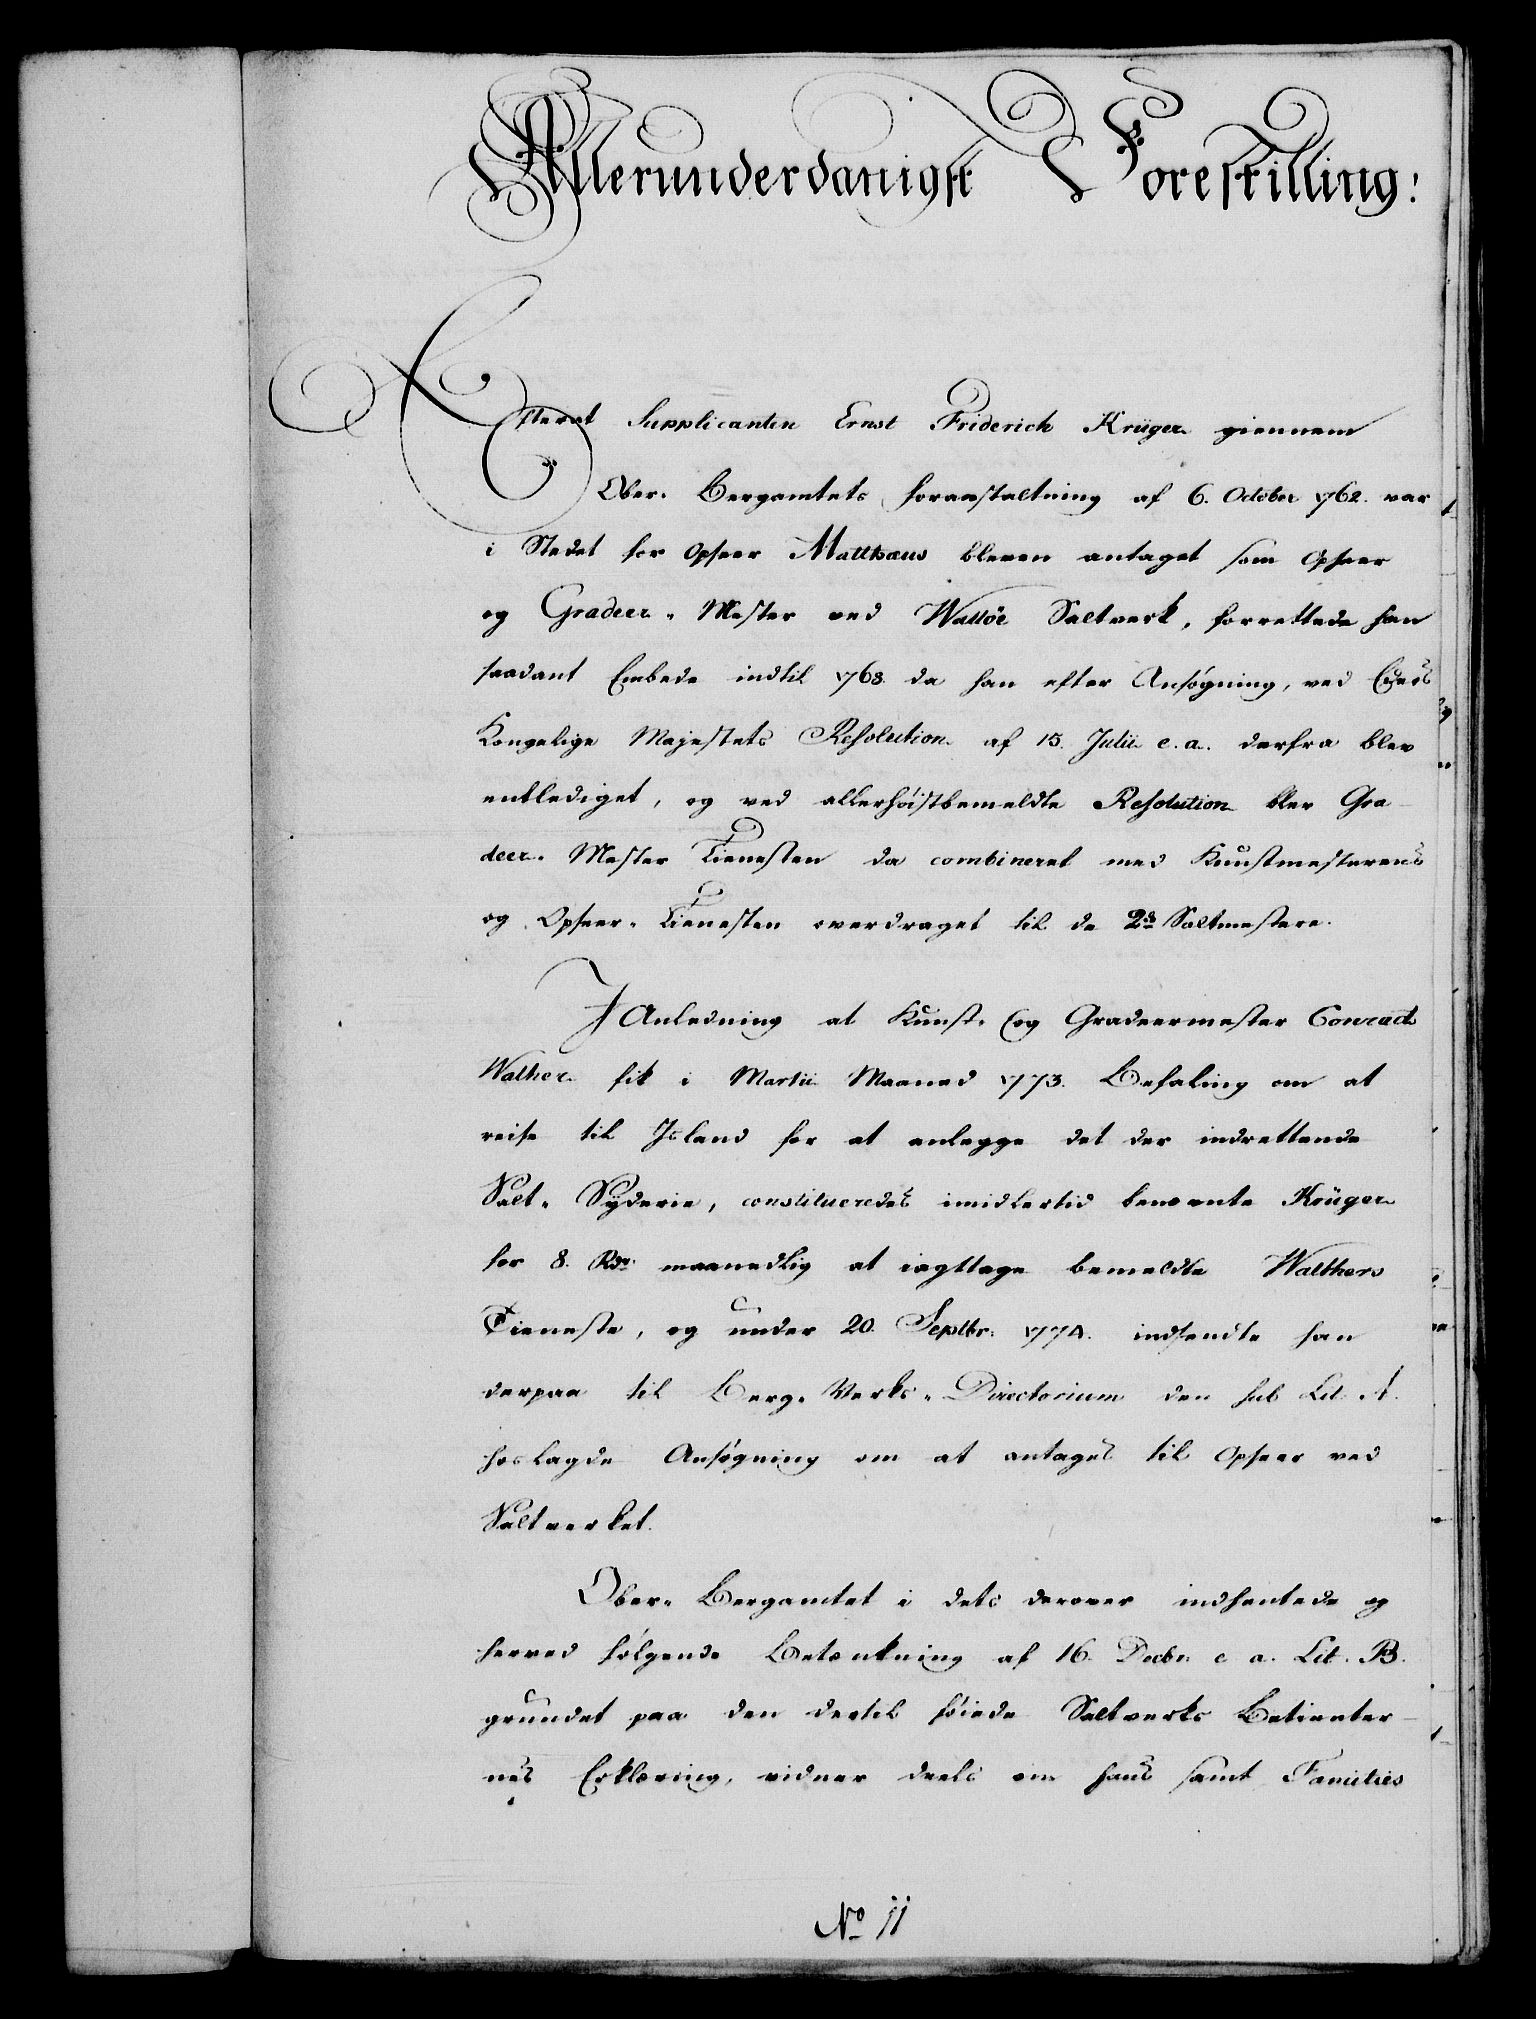 Allerunderdanigst Forestilling:
Efterat Supplicanten Ernst Friderich Krüger giennem
Ober-Bergamtets foranstaltning af 6. October 1762. var
i Stedet for Opseer Matthæus bleven antaget som Opseer
og Gradeer-Mester ved Walløe Saltverk, forrettede han
saadant Embede indtil 1768. da han efter Ansøgning, ved Eders
Kongelige Majestets Resolution af 15. Julii e. a. derfra blev
entlediget, og ved allerhöistbemeldte Resolution blev Gra-
deer-Mester Tienesten da combineret med Kunstmesterens
og Opseer-Tienesten overdraget til de 2de Saltmestere.
I Anledning at Kunst- og Gradeermester Conrad
Walther fik i Martii Maaned 1773. Befaling om at
reise til Island for at anlegge det der indrettende
Salt-Syderie, constitueredes imidlertid benævnte Krüger
for 8. Rdr. maanedlig at iagttage bemeldte Walthers
Tieneste, og under 20. Septbr. 1774. indsendte han
derpaa til Berg-Verks-Directorium den sub Lit. A.
hoslagde Ansøgning om at antages til Opseer ved
Saltverket.
Ober-Bergamtet i dets derover indhentede og
herved følgende Betænkning af 16. Decbr. e. a. Lit. B.
grundet paa den dertil föiede Saltverks Betienter-
nes Erklæring, vidner deels om hans samt Families
No 11